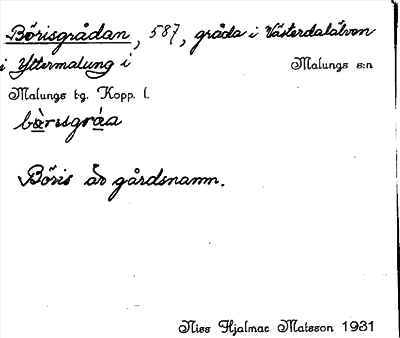 Börisgrådan, 587, gråda i Västerdalälven
i Yttermalung i Malungs s:n
Malungs tg. Kopp. l.
bàrisgráa
Böris är gårdsnamn.
Niss Hjalmar Matsson 1931